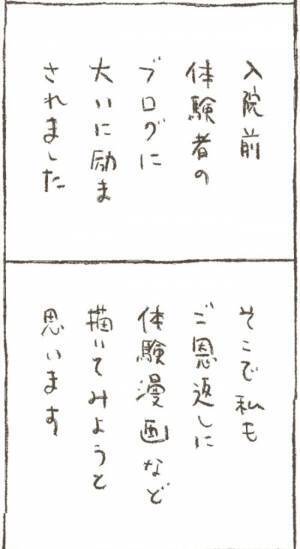 入院前
体験者の
ブログに
大いに励ま
されました
そこで私も
ご恩返しに
体験漫画など
描いてみようと
思います